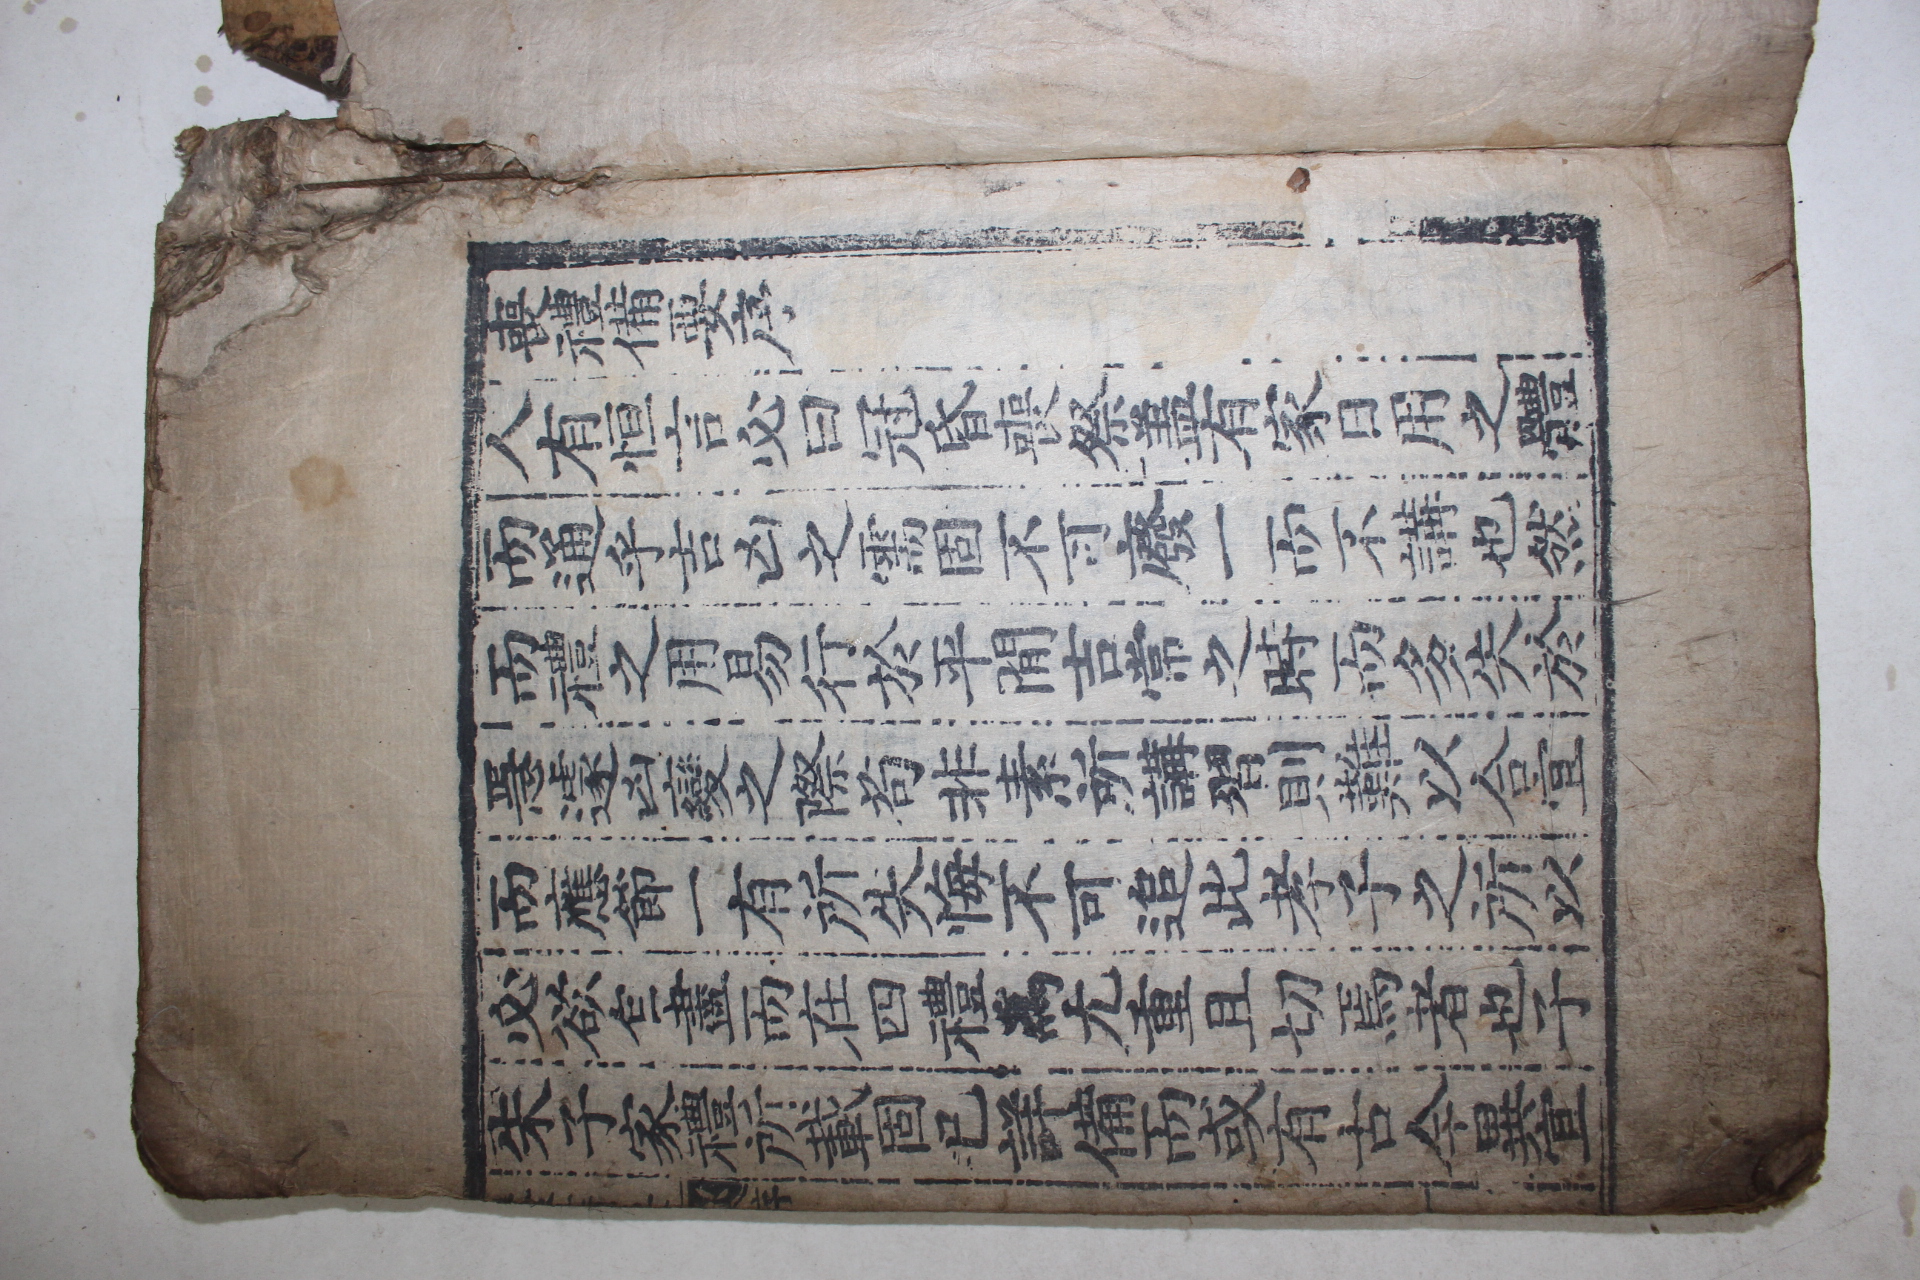 喪禮備要序
人有恒言必曰冠昏喪祭蓋有家日用之體
而通乎吉凶之需固不可廢一而不講也然
而禮之用易行於平閒吉常之時而多失於
急遽凶變之際若非素所講習則難以合宜
而應節一有所失悔不可追此孝子之所以
必欲自盡而在四禮爲尤重且切焉者也子
朱子家禮所載固已詳備而或有古今異宜